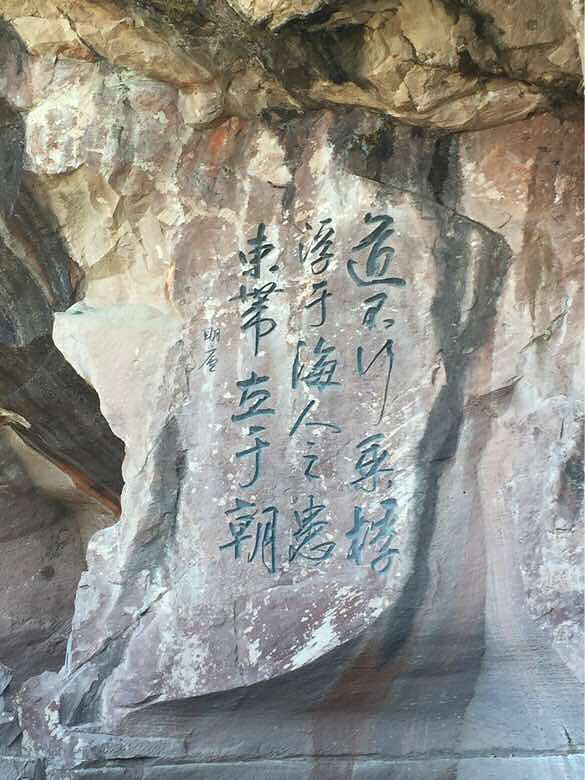 道不行乘桴
浮于海人之患
束带立于朝
明